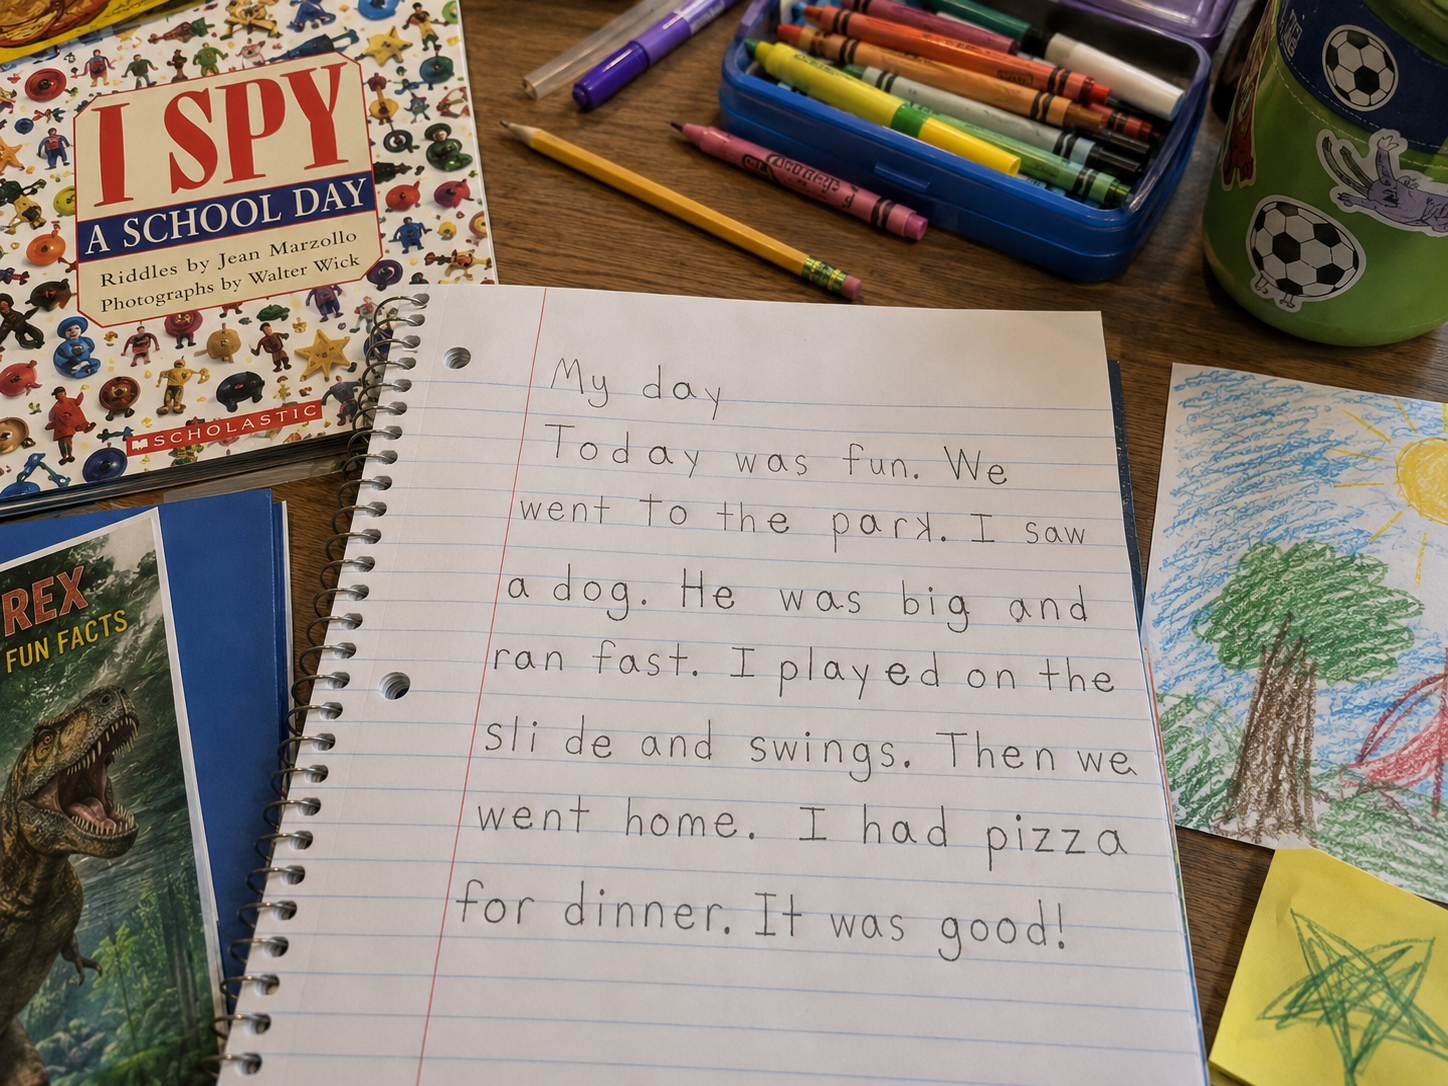 I SPY
A SCHOOL DAY
Riddles by Jean Marzollo
Photographs by Walter Wick
SCHOLASTIC
REX
FUN FACTS
My day
Today was fun. We
went to the park. I saw
a dog. He was big and
ran fast. I played on the
slide and swings. Then we
went home. I had pizza
for dinner. It was good!